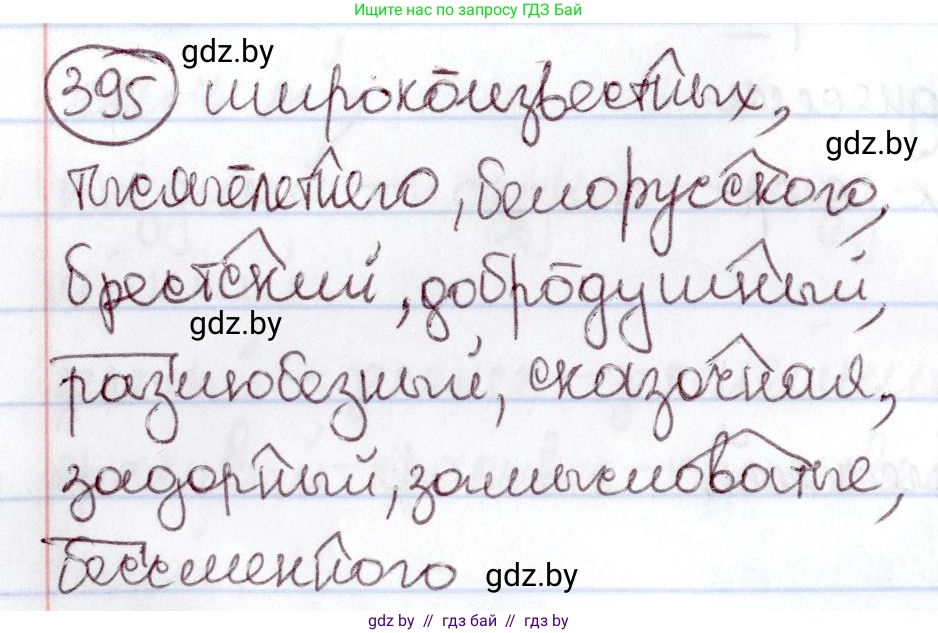 Ищите нас по запросу ГДЗ Бай
gdz.by
395 широкоизвестных,
gdz.by
тысячелетнего, белорусского,
брестский, добродушный,
gdz.by
разлюбезный, сказочная,
задорный, замысловатые,
бессменного gdz.by
gdz.by // гдз бай // gdz.by